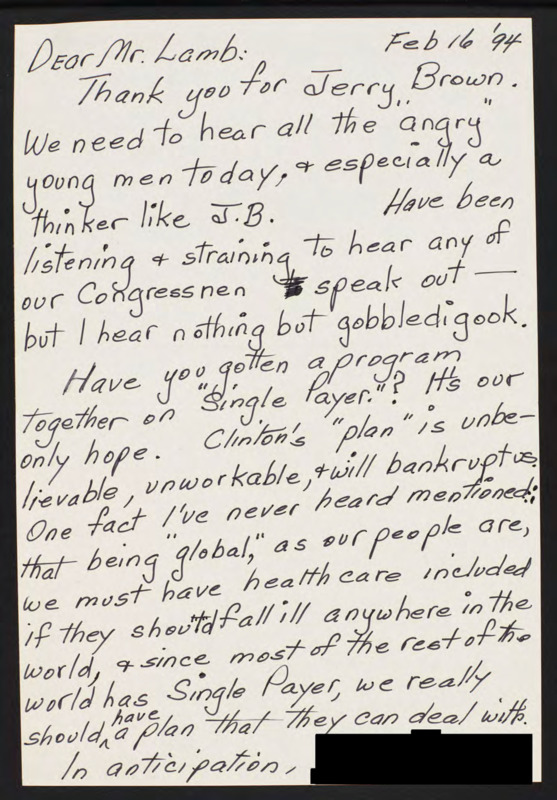 Feb 16 '94
Dear Mr. Lamb:
Thank you for Jerry Brown.
We need to hear all the "angry"
young men today, & especially a
thinker like J.B. Have been
listening & straining to hear any of
our Congressmen speak out —
but I hear nothing but gobbledigook.
Have you gotten a program
together on "Single Payer."? It's our
only hope. Clinton's "plan" is unbe-
lievable, unworkable, & will bankrupt us.
One fact I've never heard mentioned:
that being "global," as our people are,
we must have health care included
if they should fall ill anywhere in the
world, & since most of the rest of the
world has Single Payer, we really
should have a plan that they can deal with.
In anticipation,